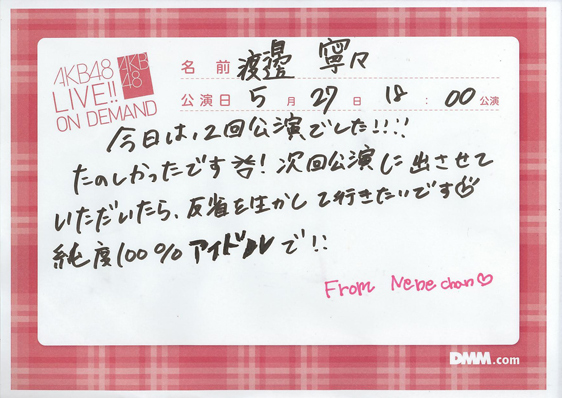 AKB48
LIVE!!
ON DEMAND
AKB
48
名 前 渡邊 寧々
公演日 5 月 27 日 18 : 00 公演
今日は、2回公演でした!!!!
たのしかったです! 次回公演に出させて
いただいたら、反省を生かして行きたいです
純度100% アイドルで!!
From Nene chan♡
DMM.com